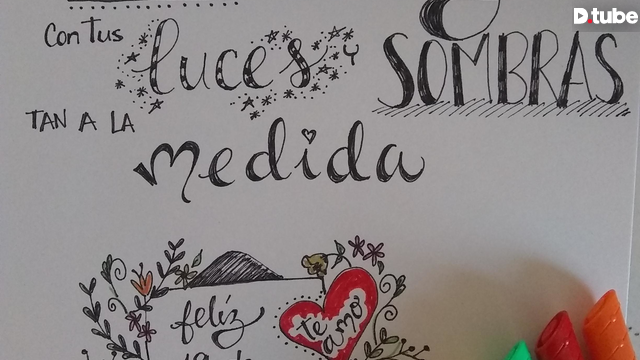 D.tube
Con Tus luces y SOMBRAS
TAN A LA
medida
feliz
te amo